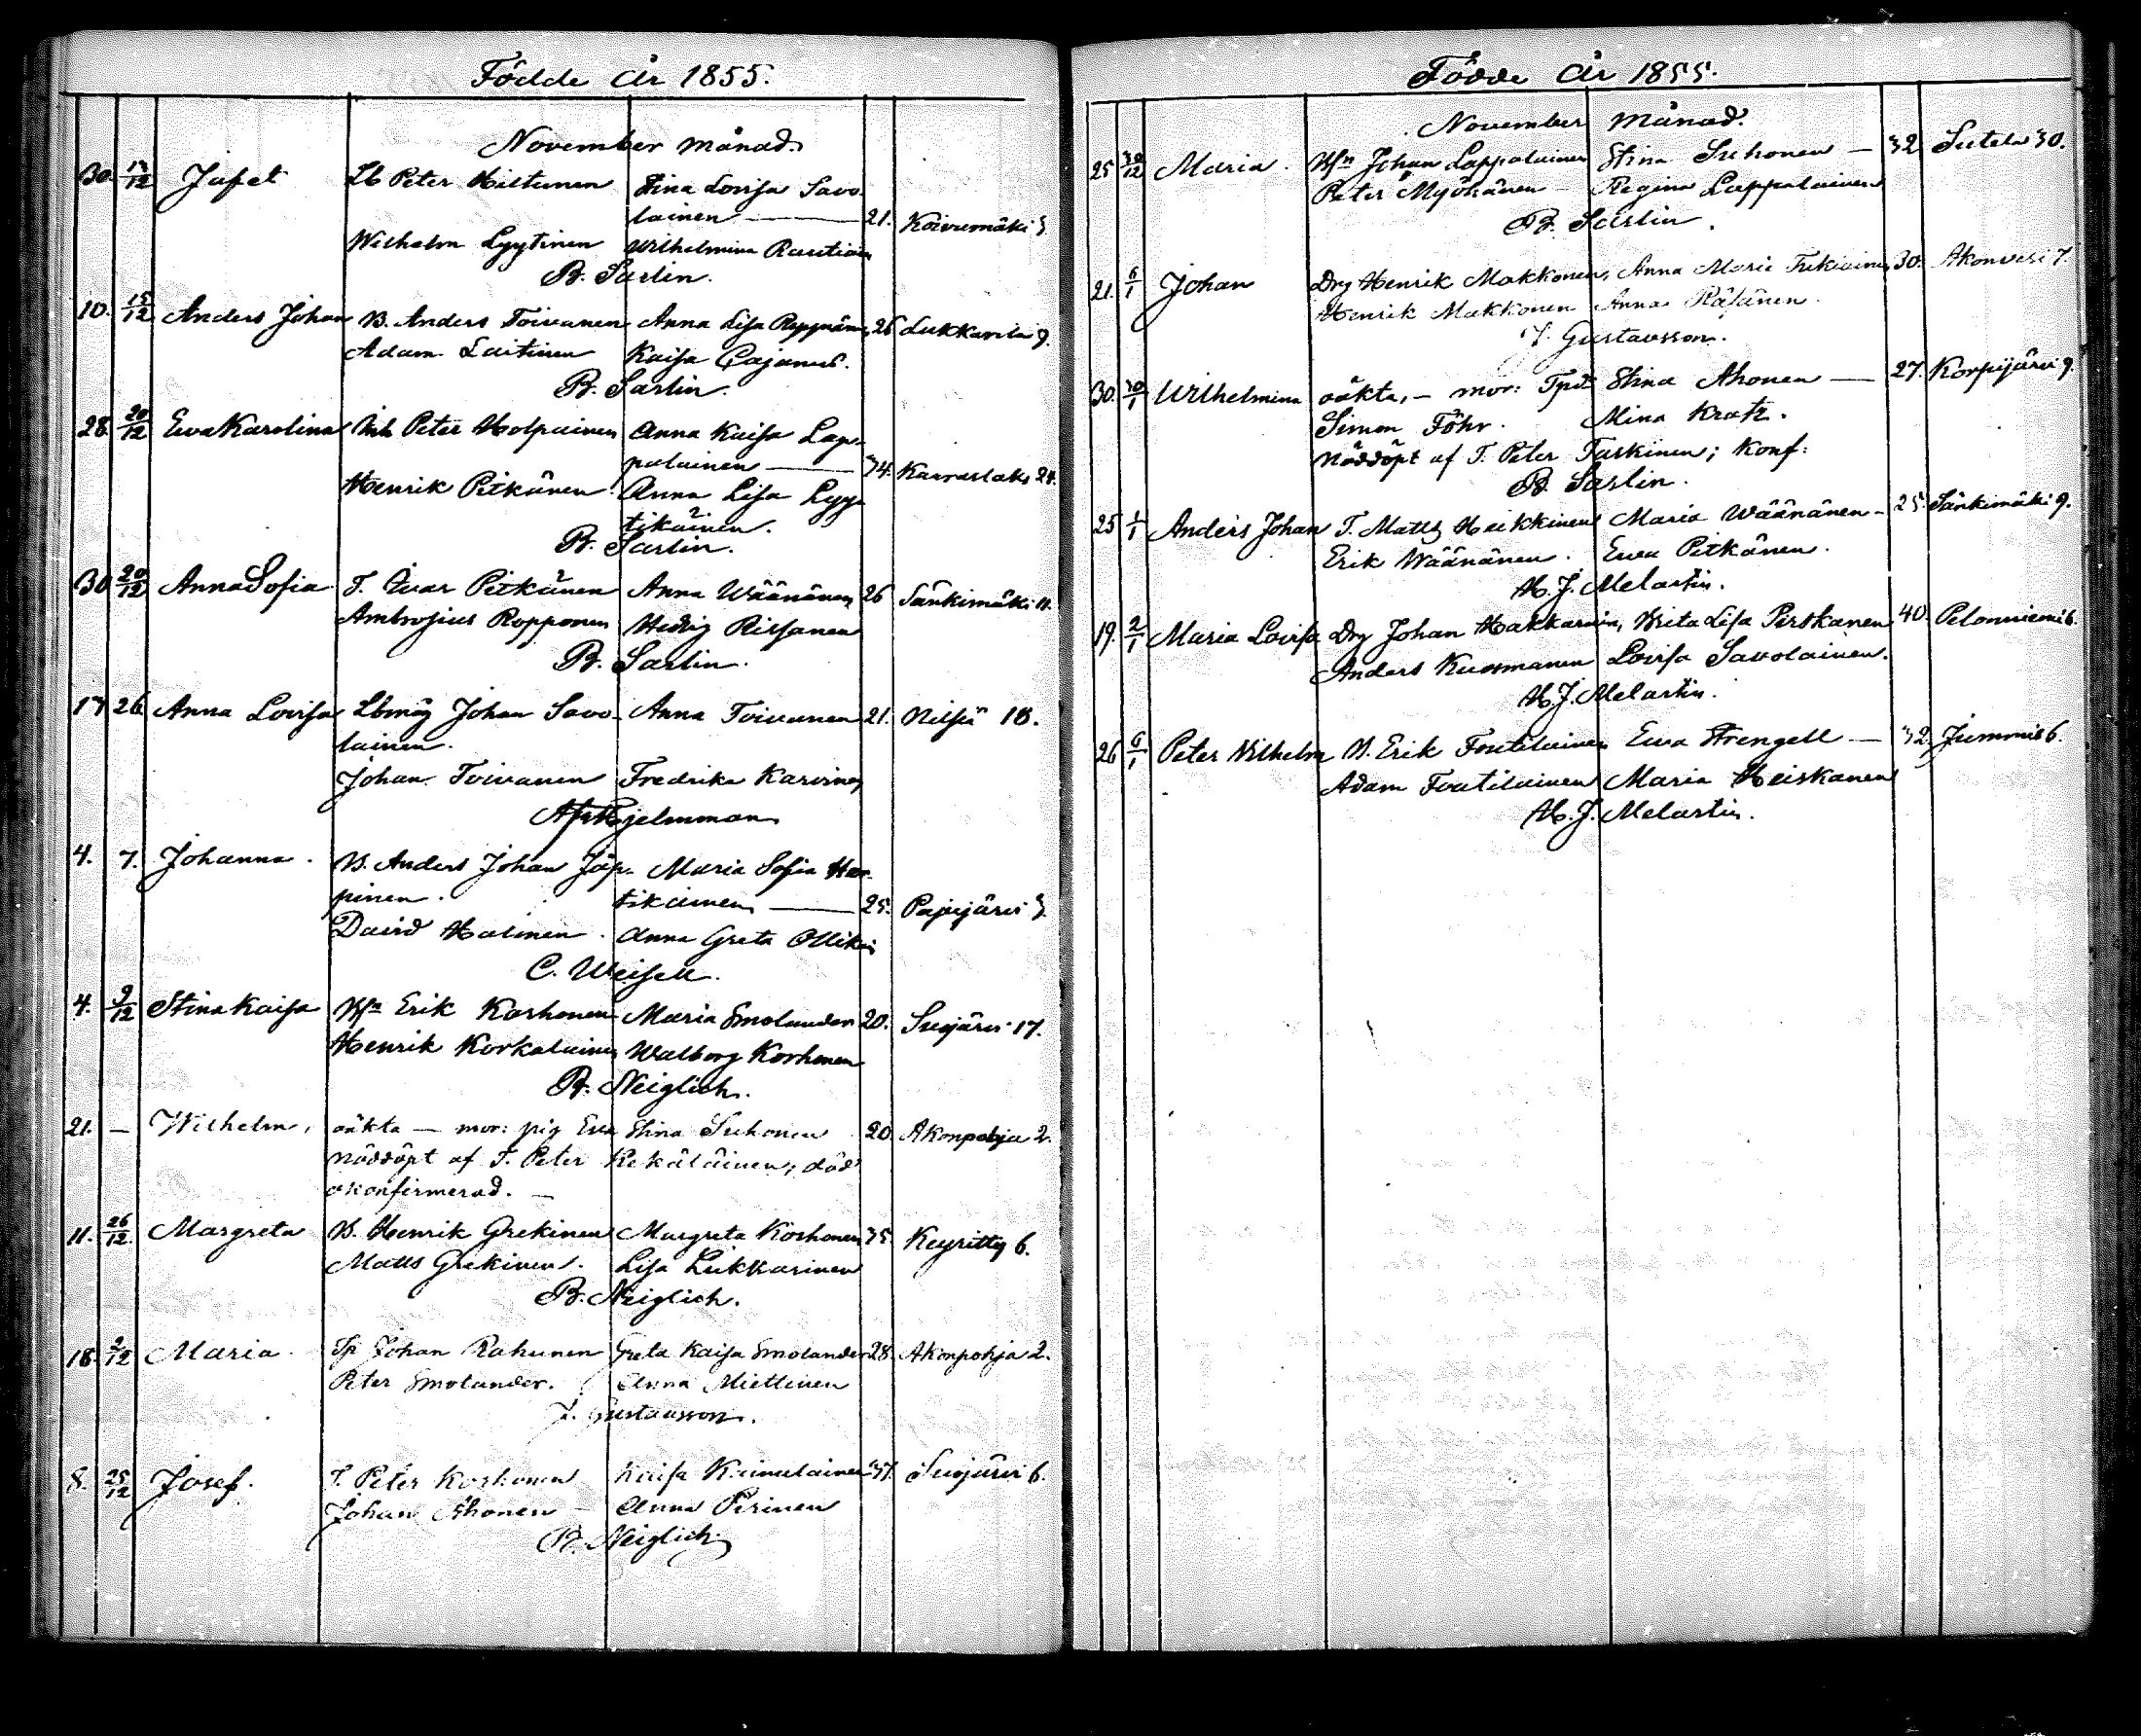 Födde År 1855.
November månad.
30. 13/12 Jafet Lb Peter Hiltunen Stina Lovisa Savo-
lainen — 21. Koivumäki 3.
Wilhelm Lyytinen Wilhelmina Rautiain
B. Sarlin.
10. 15/12 Anders Johan B. Anders Toivanen Anna Lisa 26 Lukkarila 9.
Adam Laitinen Kaisa Cajanus.
B. Sarlin.
28. 20/12 Ewa Karolina Peter Holpainen Anna Kaisa Lap-
palainen — 34. Karraslaks 24.
Henrik Pitkänen Anna Lisa Lyy-
tikäinen.
B. Sarlin.
30 20/12 Anna Sofia T. Ivar Pitkänen Anna Wäänänen 26 Sänkimäki 11.
Ambrosius Ropponen Hedvig Rissanen
B. Sarlin.
17 26 Anna Lovisa Lbmåg Johan Savo- Anna Toivanen 21. Nilsiä 18.
lainen.
Johan Toivanen Fredrika Karvinen
Hjelmman
4. 7. Johanna. B. Anders Johan Jäp- Maria Sofia Har-
pinen. tikainen — 25. Pajujärvi 3.
David Halinen. Anna Greta Ollikain
C. Weisell.
4. 9/12 Stina Kaisa Bsn Erik Korhonen Maria Smolander 20. Suojärvi 17.
Henrik Korkalainen Walborg Korhonen
B. Neiglich.
21. — Wilhelm, oäkta — mor: pig Ewa Stina Suhonen 20. Akonpohja 2.
nöddöpt af T. Peter Kekäläinen; död
okonfirmerad. —
11. 26/12. Margreta B. Henrik Grekinen Margreta Korhonen 35. Keyritty 6.
Matts Grekinen. Lisa Lukkarinen
B. Neiglich.
18. 2/12 Maria. Sp Johan Rahunen Greta Kaisa Smolander 28. Akonpohja 2.
Peter Smolander. Anna Miettinen
J. Gustavsson.
8. 25/12 Josef. T. Peter Korhonen Kaisa Kainulainen 37. Suojärvi 6.
Johan Ahonen — Anna Pirinen
B. Neiglich.
Födde År 1855.
November månad.
25 30/12 Maria. Bsn Johan Lappalainen Stina Suhonen — 32 Sutela 30.
Peter Myöhänen — Regina Lappalainen
B. Sarlin.
21. 6/1 Johan Drg Henrik Makkonen, Anna Maria Tukiainen 30. Akonvesi 7.
Henrik Makkonen Anna Räsänen.
J. Gustavsson.
30. 30/1 Wilhelmina oäkta, — mor: Tpd Stina Ahonen — 27. Korpijärvi 9.
Simon Föhr. Mina Kratz.
Nöddöpt af T. Peter Taskinen; Konf:
B. Sarlin.
25 1/1 Anders Johan T. Matts Heikkinen Maria Wäänänen — 25. Sänkimäki 9.
Erik Wäänänen. Ewa Pitkänen.
H. J. Melartin.
19. 2/1 Maria Lovisa Drg Johan Hakkarain, Brita Lisa Pirskanen 40. Pelonniemi 6.
Anders Kuosmanen Lovisa Savolainen.
H. J. Melartin.
26 6/1 Peter Wilhelm B. Erik Foutilainen Ewa Strengell — 32. Jumonis 6.
Adam Foutilainen Maria Heiskanen
H. J. Melartin.